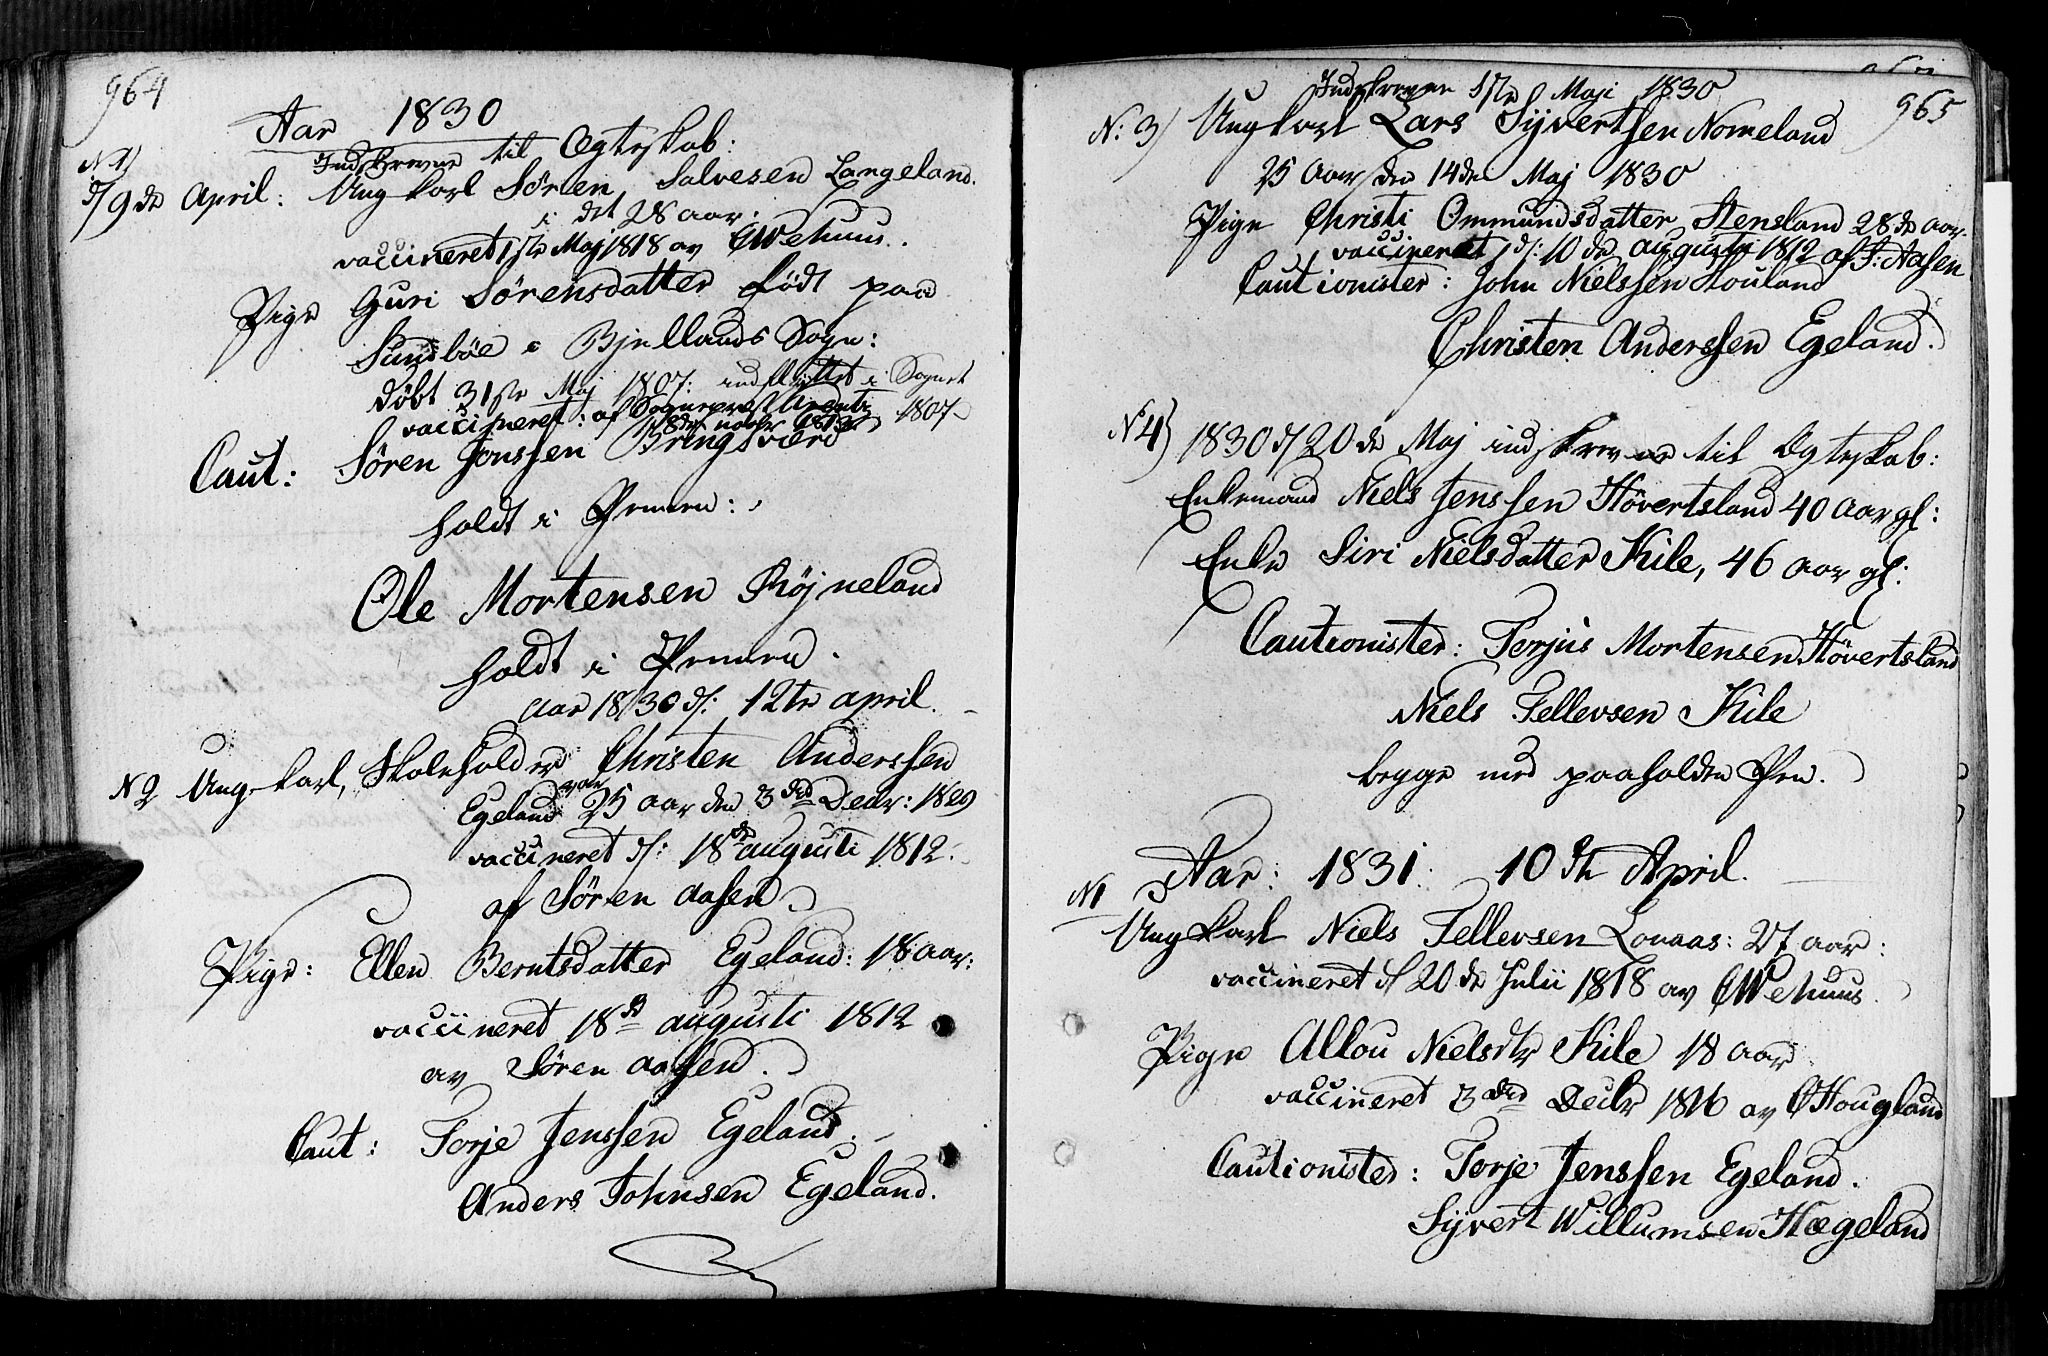 964
Aar 1830
Indskrevne til Ægteskab:
N 1)
d/ 9de April: Ungkarl Sören Salvesen Langeland.
i det 28 aar.
vaccineret 1ste Maj 1818 av CWehuus.
Pige Guri Sörensdatter født paa
Sundböe i Bjellands Sogn:
døbt 31ste Maj 1807: indflyttet i Sognet
vaccineret: af Sognepræst 1807
Caut: Sören Jonssen Bringsværd
holdt i Pennen:
Ole Mortensen Röjneland
holdt i Pennen.
Aar 1830 d: 12te april.
N 2 Ungkarl, Skoleholder Christen Anderssen
Egeland var 25 aar den 3die Decbr: 1829
vaccineret d: 18de augusti 1812.
af Sören Aasen
Pige: Ellen Berntsdatter Egeland: 18 aar:
vaccineret 18de augusti 1812
av Sören Aasen.
Caut: Torje Jenssen Egeland.
Anders Johnsen Egeland.
965
Indskreven 1ste Maji 1830
N: 3) Ungkarl Lars Syvertsen Nomeland
25 Aar den 14de Maj 1830
Pige Christi Ommundsdatter Stensland 28de aar.
vaccineret d: 10de augusti 1812 af S: Aasen
Cautionister: John Nielssen Houland
Christen Anderssen Egeland.
N 4) 1830 d/ 20de Maj indskrevne til Ægteskab:
Enkemand Niels Jenssen Hövertsland 40 Aar gl:
Enke Siri Nielsdatter Kile, 46 aar gl:
Cautionister: Torjus Mortensen Hövertsland
Niels Tellevsen Kile
begge med paaholden Pen.
Aar: 1831: 10de April.
N 1
Ungkarl Niels Tellevsen Lonaas: 27 aar:
vaccineret d 20de Julii 1818 av CWehuus.
Pige Allou Nielsdtr Kile 18 aar
vaccineret 3die Decbr 1816 av OHougland
Cautionister: Torje Jenssen Egeland.
Syvert Willumsen Hægeland